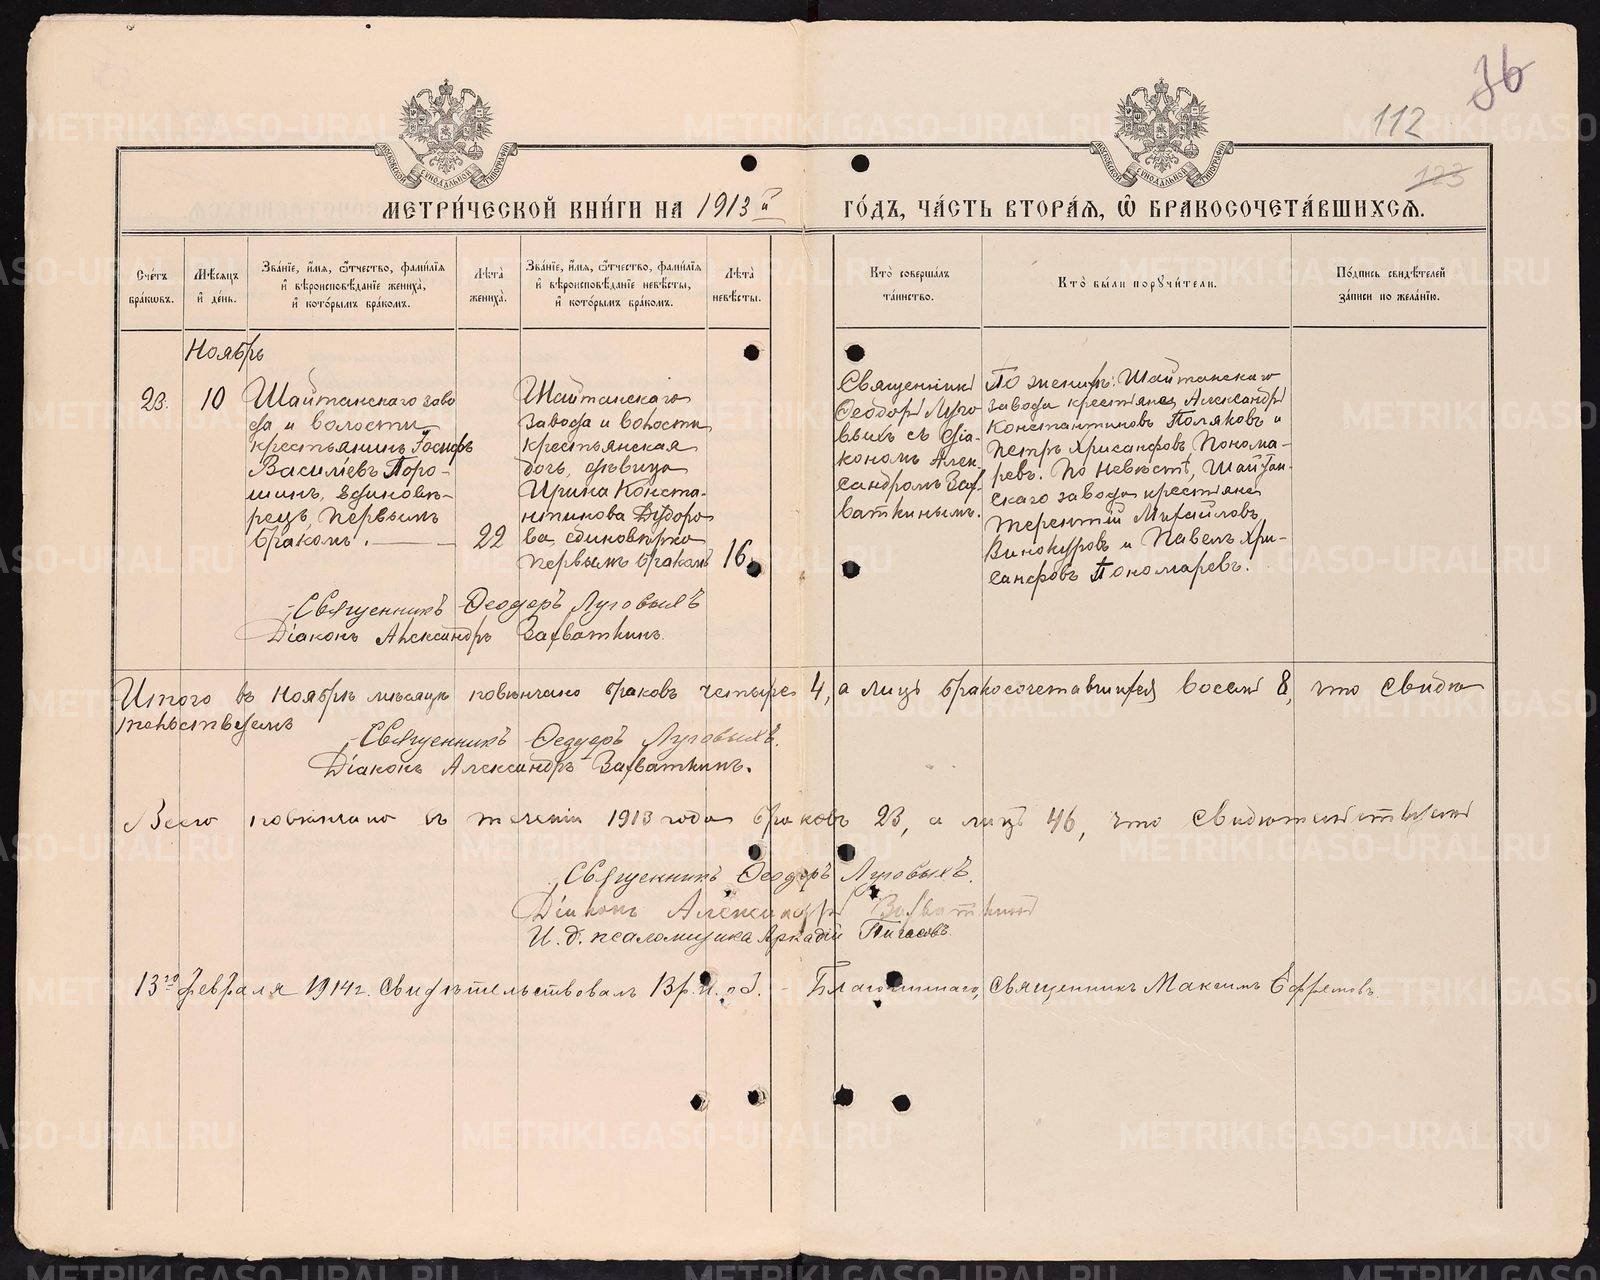 36
112
123
МОСКОВСКОЙ СѴНОДАЛЬНОЙ ТИПОГРАФІИ
МОСКОВСКОЙ СѴНОДАЛЬНОЙ ТИПОГРАФІИ
МЕТРИ́ЧЕСКОЙ КНИ́ГИ НА 1913й
ГО́ДЪ, ЧА́СТЬ ВТОРА́Я, Ѽ БРАКОСОЧЕТА́ВШИХСЯ.
Сче́тъ бра́кωвъ.
Мѣ́сяцъ и҆ де́нь.
Зва́нїе, и҆́мя, ѻ҆́тчество, фами́лїя и҆ вѣроисповѣ́данїе жениха̀, и҆ кото́рымъ бра́комъ.
Лѣта̀ жениха̀.
Зва́нїе, и҆́мя, ѻ҆́тчество, фами́лїя и҆ вѣроисповѣ́данїе невѣ́сты, и҆ кото́рымъ бра́комъ.
Лѣта̀ невѣ́сты.
Кто̀ соверша́лъ та́инство.
Кто̀ бы́ли порꙋчи́тели.
По́дпись свидѣ́телей за́писи по жела́нїю.
Ноябрь
23.
10
Шайтанскаго заво
да и волости
крестьянинъ Іосифъ
Василіевъ Поро-
шинъ, единовѣ-
рецъ, первымъ
бракомъ.
22
Шайтанскаго
завода и волости,
крестьянская
дочь, дѣвица
Ирина Конста-
нтинова Дідоро
ва, единовѣрка
первымъ бракомъ
16.
Священникъ
Ѳеодоръ Луго
выхъ съ діа-
кономъ Алек-
сандромъ Зах-
ваткинымъ.
По женихѣ: Шайтанскаго
завода крестьяне, Александръ
Константиновъ Поляковъ и
Петръ Хрисанфовъ, Понома-
ревъ. По невѣстѣ, Шайтан-
скаго завода крестьяне
Терентій Михайловъ
Винокуровъ и Павелъ Хри-
санфовъ Пономаревъ.
Священникъ Ѳеодоръ Луговыхъ
Діаконъ Александръ Захваткинъ.
Итого въ Ноябрѣ мѣсяцѣ повѣнчано браковъ четыре 4, а лицъ бракосочетавшихся восемь 8, что свидѣ
тельствуемъ
Священникъ Ѳеодоръ Луговыхъ.
Діаконъ Александръ Захваткинъ.
Всего повѣнчано въ теченіи 1913 года браковъ 23, а лицъ 46, что свидѣтельствуемъ
Священникъ Ѳеодоръ Луговыхъ.
Діаконъ Александръ Захваткинъ
И. д. псаломщика Аркадій
13го Февраля 1914 г. свидѣтельствовалъ
Священникъ Максимъ Ефремовъ.
METRIKI.GASO-URAL.RU